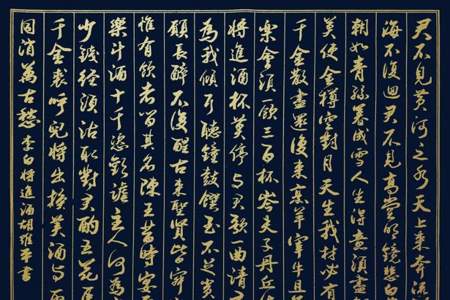 君不見黃河之水天上來奔流
海不復迴君不見高堂明鏡悲白
朝如青絲暮成雪人生得意須盡
莫使金樽空對月天生我材必有
千金散盡還復來烹羊宰牛且
樂會須一飲三百杯岑夫子丹丘
將進酒杯莫停與君歌一曲請
為我傾耳聽鐘鼓饌玉不足貴
願長醉不復醒古來聖賢皆寂
惟有飲者留其名陳王昔時宴
樂斗酒十千恣歡謔主人何為
少錢徑須沽取對君酌五花馬
千金裘呼兒將出換美酒與爾
同消萬古愁 李白將進酒胡維平書